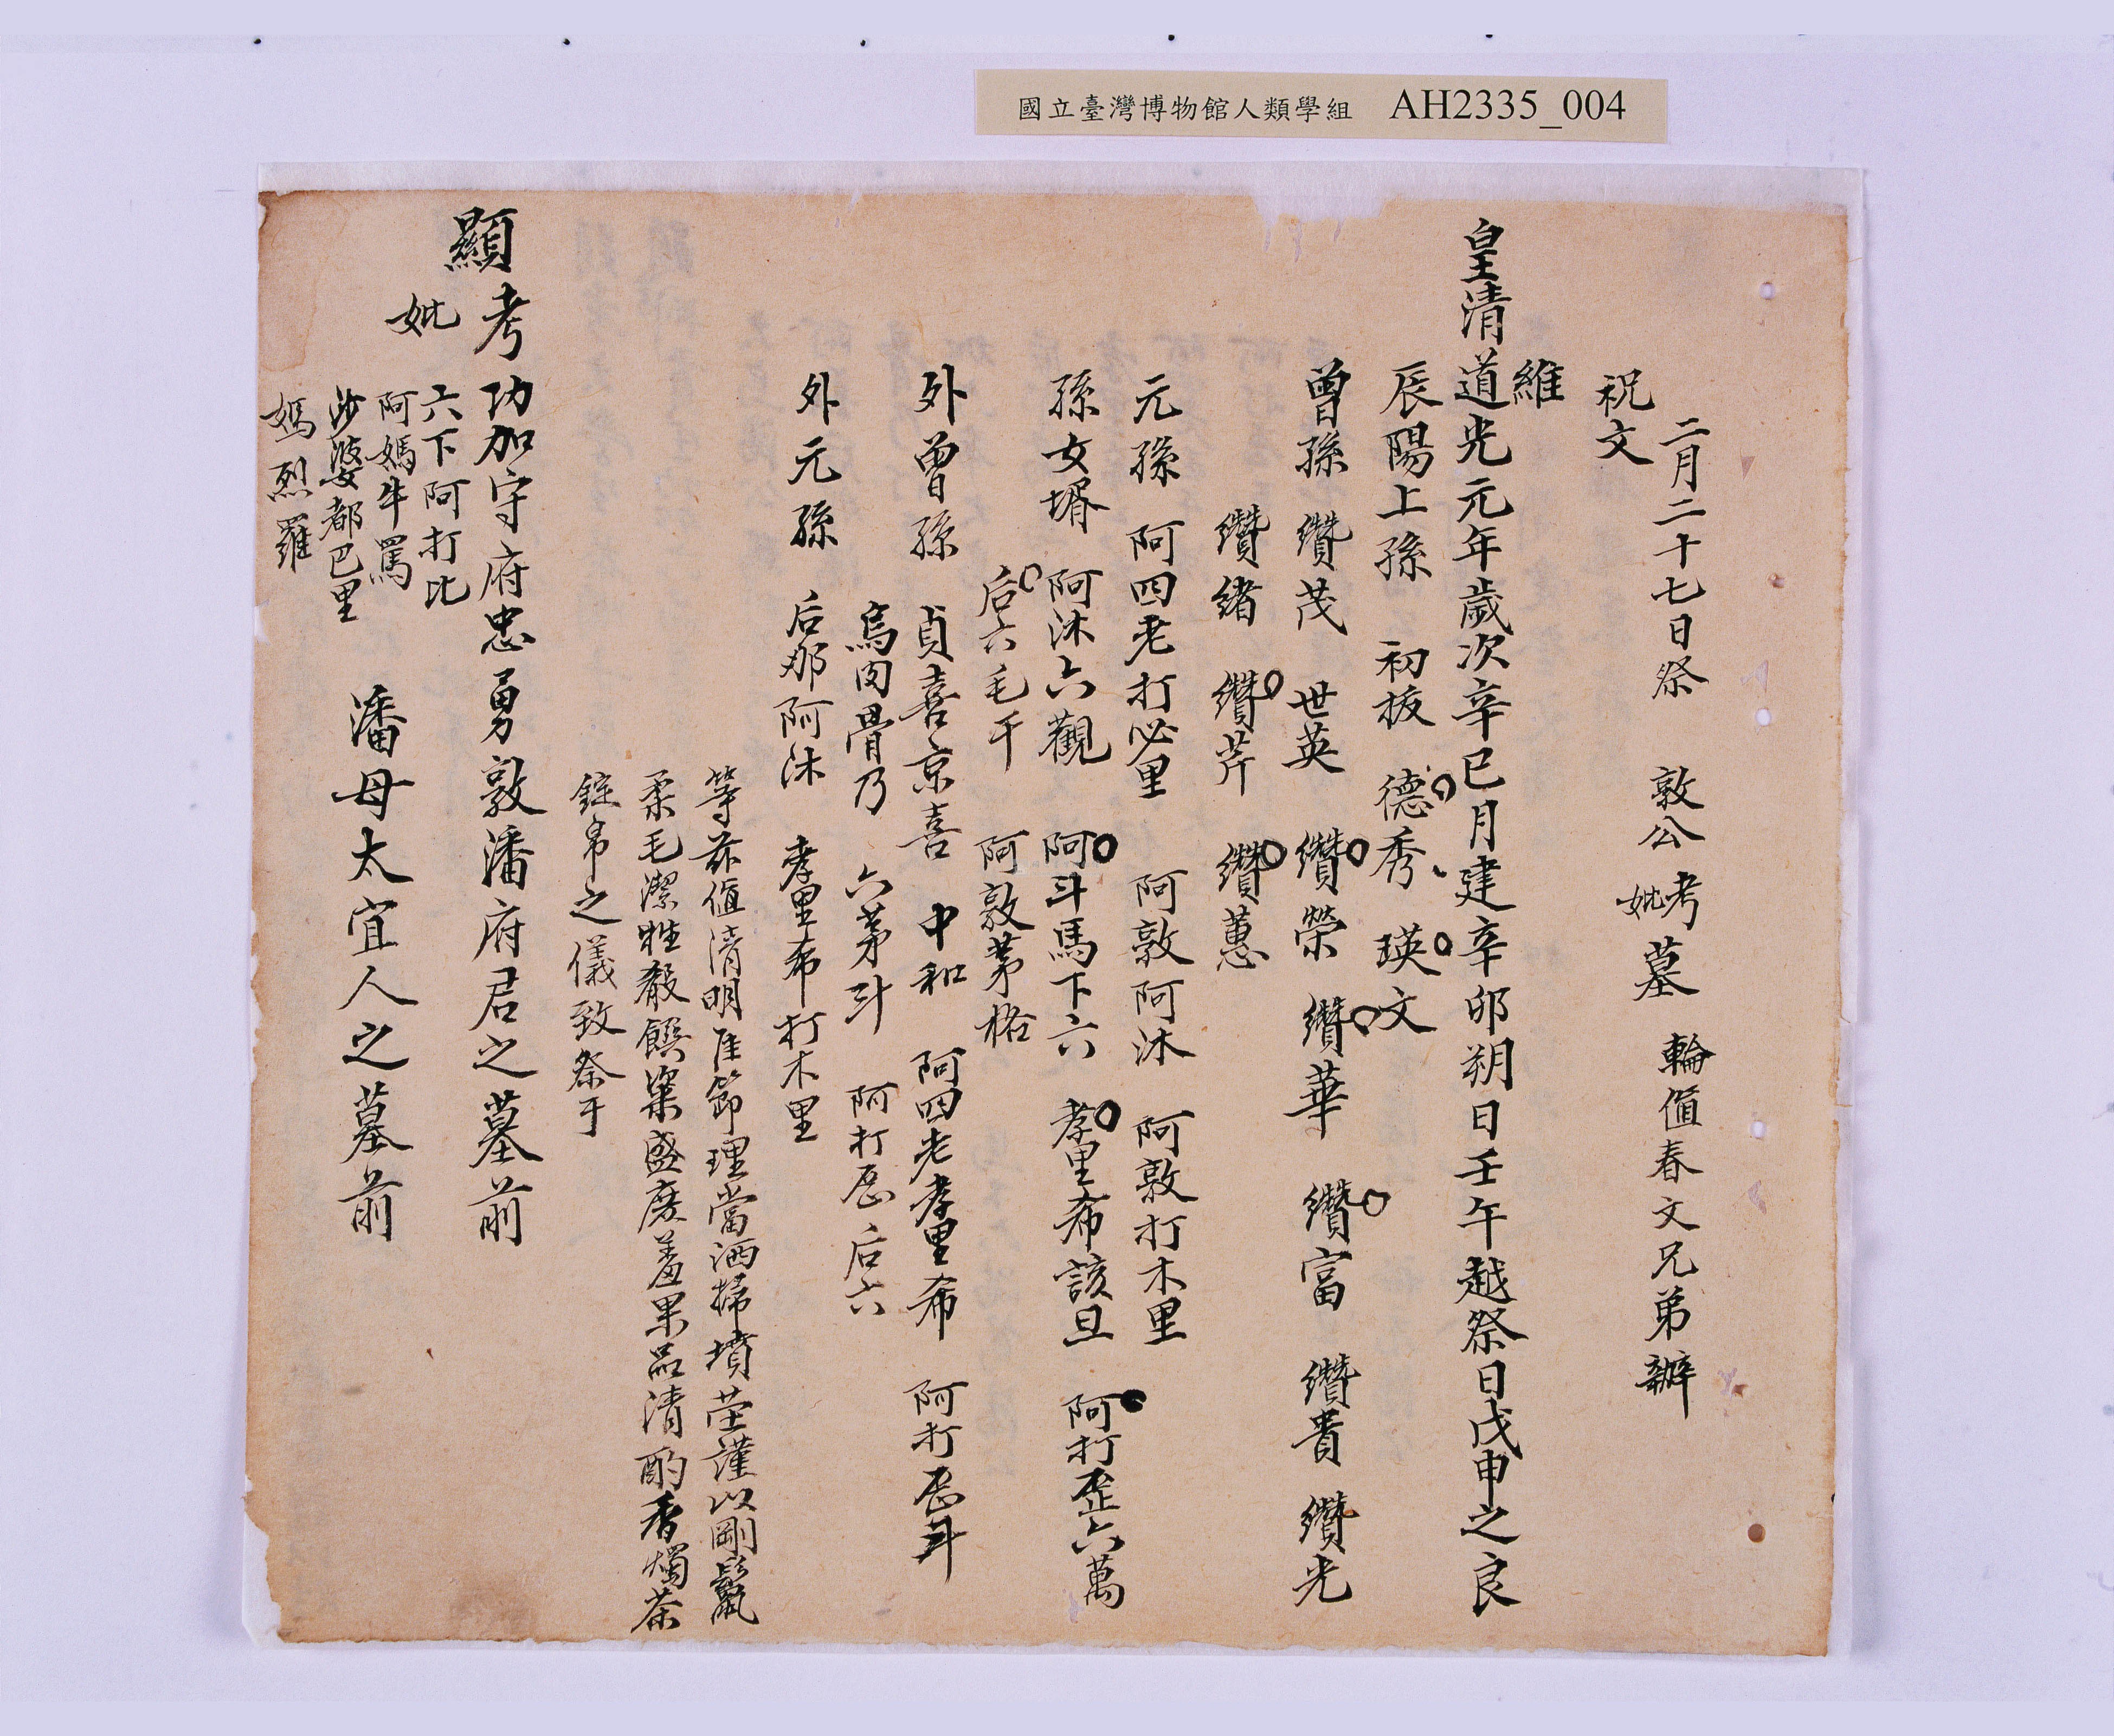 國立臺灣博物館人類學組 AH2335_004
二月二十七日祭 敦公考妣墓 輪值春文兄弟辦
祝文
維
皇清道光元年歲次辛巳月建辛卯朔日壬午越祭日戊申之良
辰陽上孫 初拔 德秀 瑛文
曾孫 纘茂 世英 纘榮 纘華 纘富 纘貴 纘光
纘緒 纘芹 纘蕙
元孫 阿四老打必里 阿敦阿沐 阿敦打木里
孫女壻 阿沐六觀 阿斗馬下六 孝里希該旦 阿打歪六萬
后六毛干 阿敦茅格
外曾孫 貞喜京喜 中和 阿四老孝里希 阿打歷斗
烏肉骨乃 六茅斗 阿打歷后六
外元孫 后那阿沐 孝里希打木里
等茲值清明佳節理當洒掃墳塋謹以剛鬣
柔毛潔牲殽饌粢盛庶羞果品清酌香燭茶
錠帛之儀致祭于
顯考 功加守府忠勇敦潘府君之墓前
妣 六下阿打比
阿媽牛罵
沙婆都巴里
媽烈羅
潘母太宜人之墓前